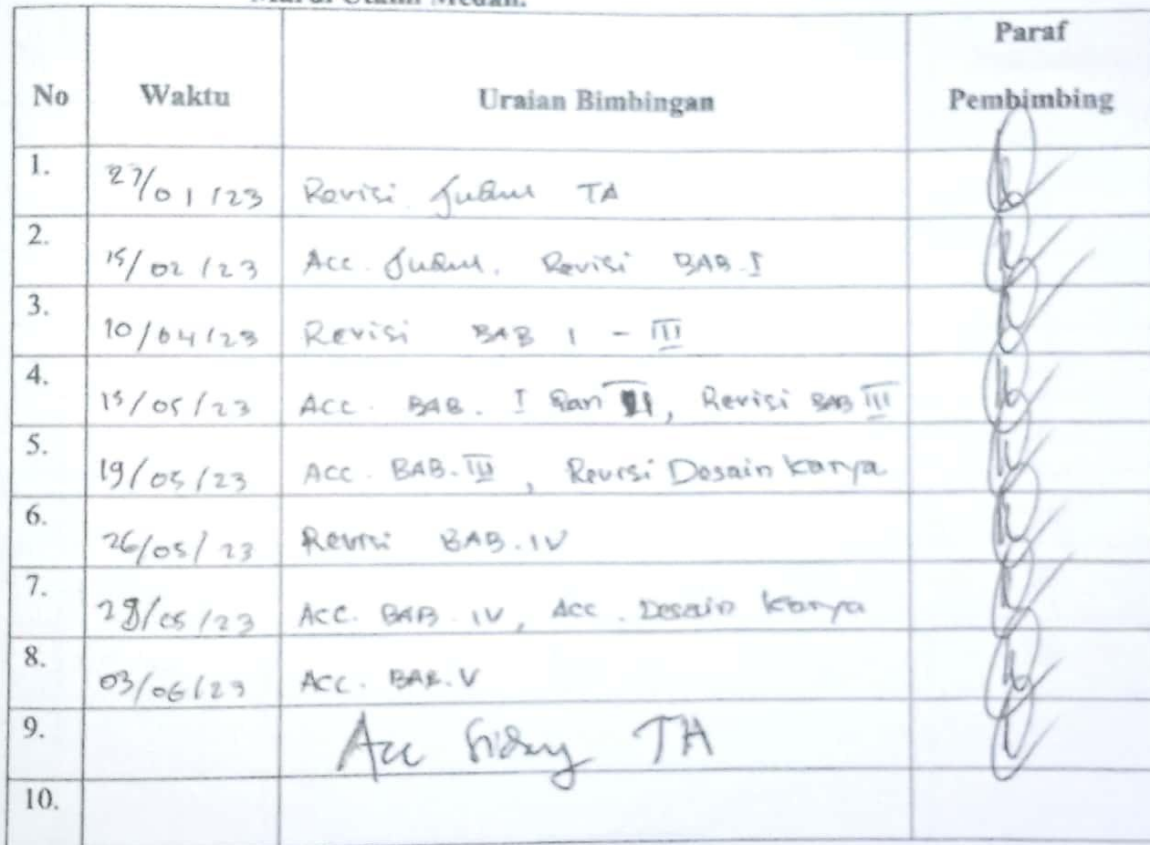 Medan.
No Waktu Uraian Bimbingan Paraf Pembimbing
1. 27/01/23 Revisi Judul TA
2. 15/02/23 Acc. Judul. Revisi BAB.I
3. 10/04/23 Revisi BAB I - III
4. 15/05/23 Acc. BAB. I dan II, Revisi BAB III
5. 19/05/23 Acc. BAB.III, Revisi Desain karya
6. 26/05/23 Revisi BAB.IV
7. 28/05/23 Acc. BAB.IV, Acc. Desain karya
8. 03/06/23 Acc. BAB.V
9. Acc Sidang TA
10.